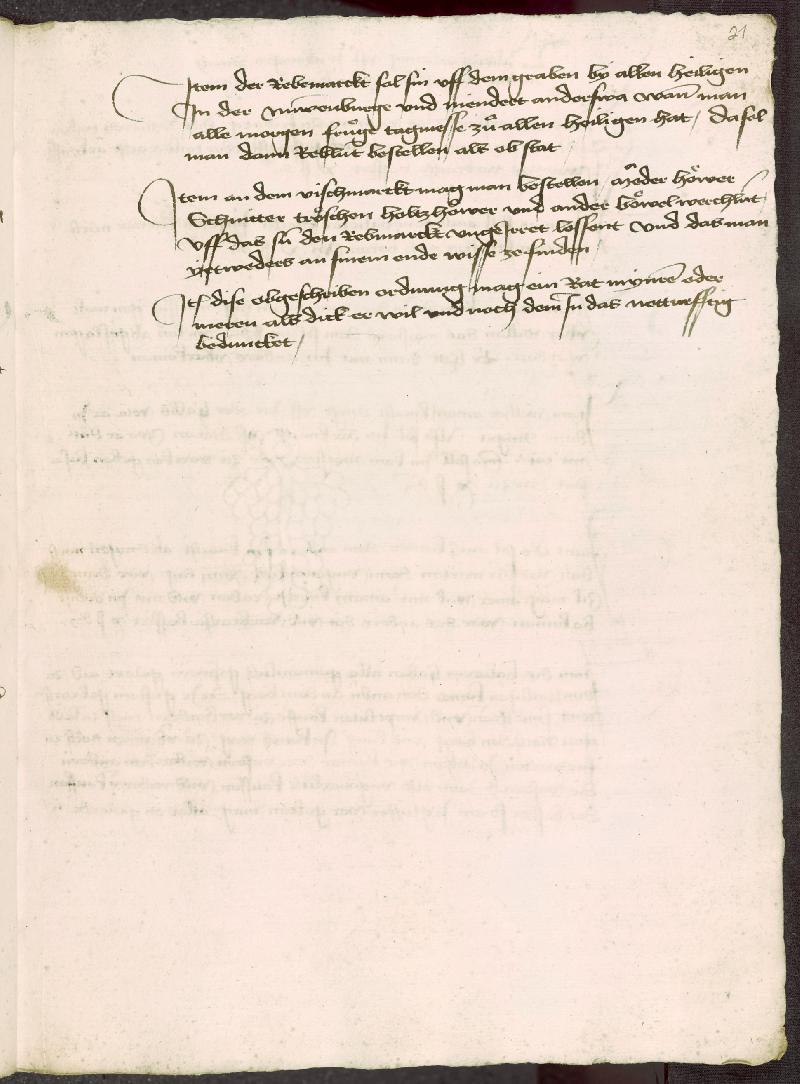 21
Item der Rebmarckt sol sin uff dem graben by allen heiligen
In der nuwenburge vnd niendert anderswa wan̄ man
alle morgen frůge tagmesse zů allen heiligen hat / da sol
man dann Reblut bestellen als ob stat
Item an dem vischmarckt mag man bestellen meder hőwer
Schnitter trőschen holtzhőwer vnd ander werchlut
vff das sú den Rebmarckt vngeirret lossent vnd das man
yetweders an sinem ende wisse ze finden
Itē dise obgeschriben ordnung mag ein Rat mynrē oder
meren als dick er wil vnd noch dem In das notturfftig
beduncket /